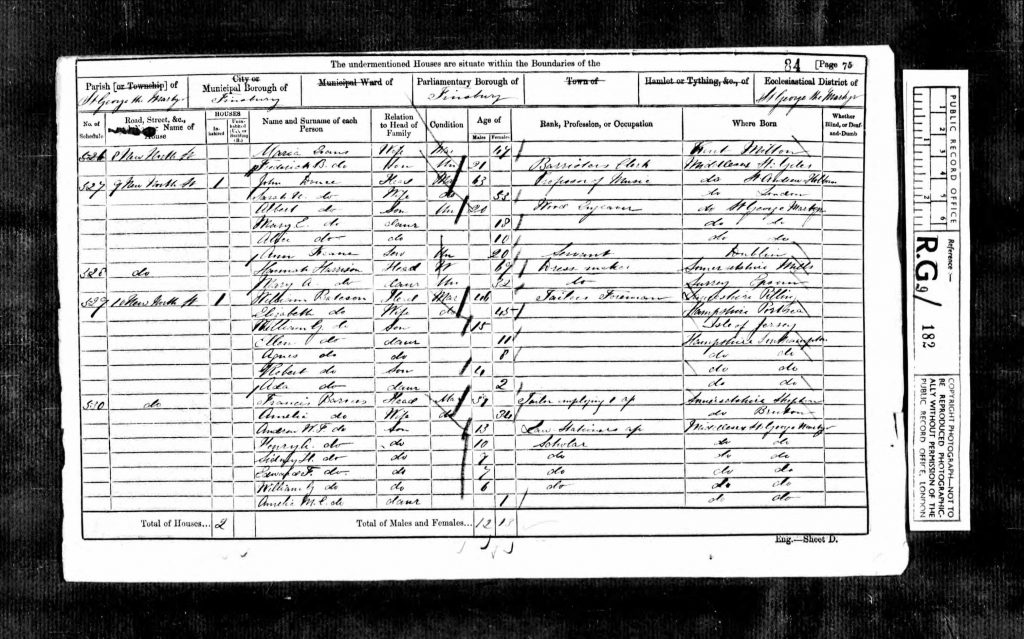 The undermentioned Houses are situate within the Boundaries of the
84 [Page 75
Parish [or Township] of
St George the Martyr
City or
Municipal Borough of
Finsbury
Municipal Ward of
Parliamentary Borough of
Finsbury
Town of
Hamlet or Tything, &c., of
Ecclesiastical District of
St George the Martyr
No. of Schedule
Road, Street, &c., and No. or Name of House
HOUSES
Inhabited
Uninhabited (U.), or Building (B.)
Name and Surname of each Person
Relation to Head of Family
Condition
Age of
Males
Females
Rank, Profession, or Occupation
Where Born
Whether Blind, or Deaf-and-Dumb
8 New North St Maria Wife Mar 47 Kent
Frederick B. do Son Un 21 Barristers Clerk Middlesex St Giles
527 9 New North St 1 John Head Mar 63 Professor of Music do St Andrew Holborn
Sarah do Wife do 53 do London
Albert do Son Un 20 Wood do St George Martyr
Mary E. do daur 18 do do
Alice do do 10 do do
Ann Serv Un 20 Servant Dublin
528 do Hannah Harrison Head W 67 Dress maker Somersetshire Wells
Mary A. do daur Un 32 do Surrey Epsom
529 10 New North St 1 William Head Mar 46 Tailor Foreman
Elizabeth do Wife do 45 Hampshire Portsea
William G. do Son 15 Isle of Jersey
Ellen do daur 11 Hampshire Southampton
Agnes do do 8 do do
Robert do Son 4 do do
Ada do daur 2 do do
530 do Francis Barnes Head Mar Tailor Somersetshire
Amelia do Wife do 34 do Bruton
Andrew W. F. do Son 13 Law Stationers Middlesex St George Martyr
Henry do do 10 Scholar do do
Sidney H. do do 9 do do do
Edward F. do do 7 do do do
William G. do do 6 do do do
Amelia M. E. do daur 1 do do
Total of Houses... 2
Total of Males and Females... 12 13
Eng.—Sheet D.
PUBLIC RECORD OFFICE
1 2 3 4 5 6
Reference:—
R.G. 9/182
COPYRIGHT PHOTOGRAPH—NOT TO BE REPRODUCED PHOTOGRAPHICALLY WITHOUT PERMISSION OF THE PUBLIC RECORD OFFICE, LONDON